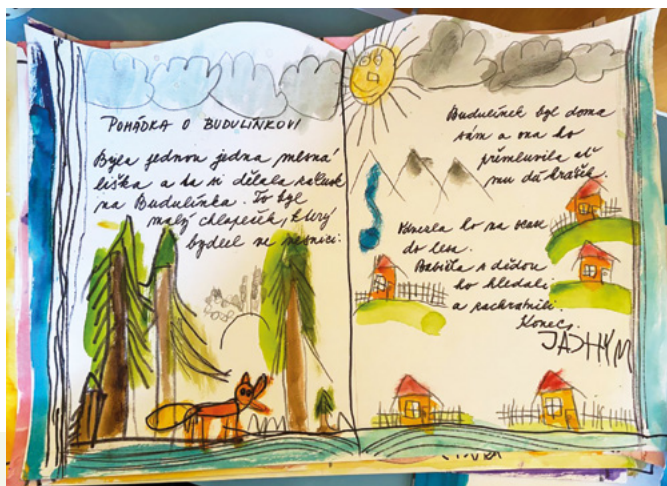 POHÁDKA O BUDULÍNKOVI
Byla jednou jedna mlsná
liška a ta si dělala zálusk
na Budulínka. To byl
malý chlapeček, který
bydlel ve vesnici.
Budulínek byl doma
sám a ona ho
přemluvila ať
mu dá hrášek.
Povozila ho na ocase
do lesa.
Babička s dědou
ho hledali
a zachránili.
Konec.
JÁCHYM